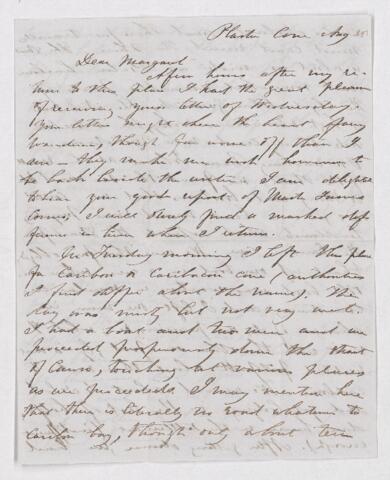 Plaster Cove Aug
Dear Margaret
A few hours after my re-
turn to this place I had the great pleasure
of receiving your letter of Wednesday.
Your letters might cheer the heart of any
wanderer, though far worse off than I
am — they make me wish however to
be back beside the writer. I am delighted
to hear your good report of
I will surely find a marked dif
ference in him when I return.
On Tuesday morning I left this place
for Caribou or Caribacou cove (authorities
I find differ about the name). The
day was misty but not very wet.
I had a boat and two men and we
proceeded prosperously down the strait
of Canso, touching at various places
as we proceeded. I may mention here
that there is literally no road whatever to
Caribou bay, though only about ten